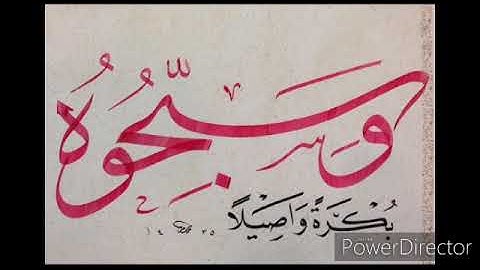 وَسَبِّحُوُهُ
بُكْرَةً وَاَصِيْلًا
PowerDirector